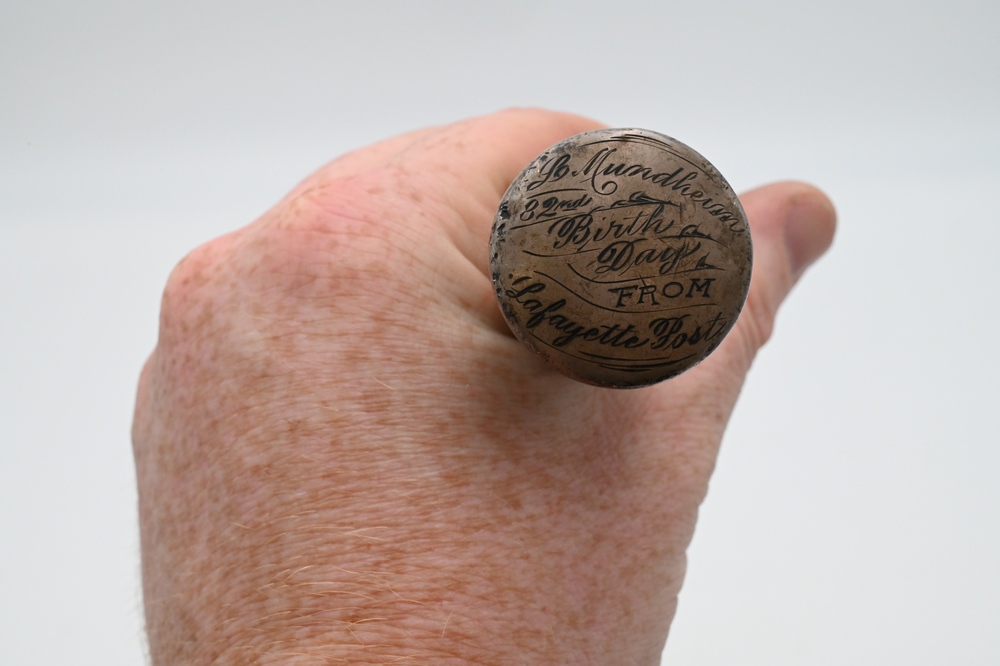 L. Mundheim
82nd
Birth
Day
FROM
Lafayette Post